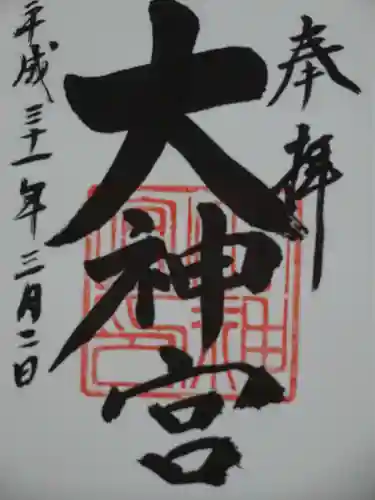 奉拝
大神宮
平成三十一年三月二日